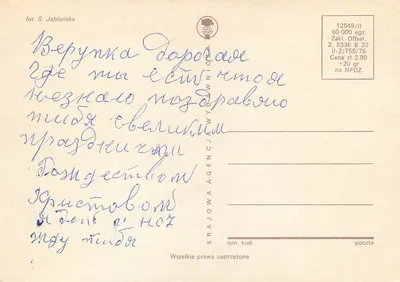 fot. S. Jabłońska
Верупка Дорогая
где ты есть что я
незнаю поздравляю
тибя свеликим
праздничым
Рождеством
Христовом
я день и ноч
жду тибя
KRAJOWA AGENCJA WYDAWNICZA
12549/II
60 000 egz.
Zakł. Offset.
Z. 5336 B 22
II-2/755/75
Cena zł 2,90
+20 gr
na NFOZ
ozn. kod.
poczta
Wszelkie prawa zastrzeżone